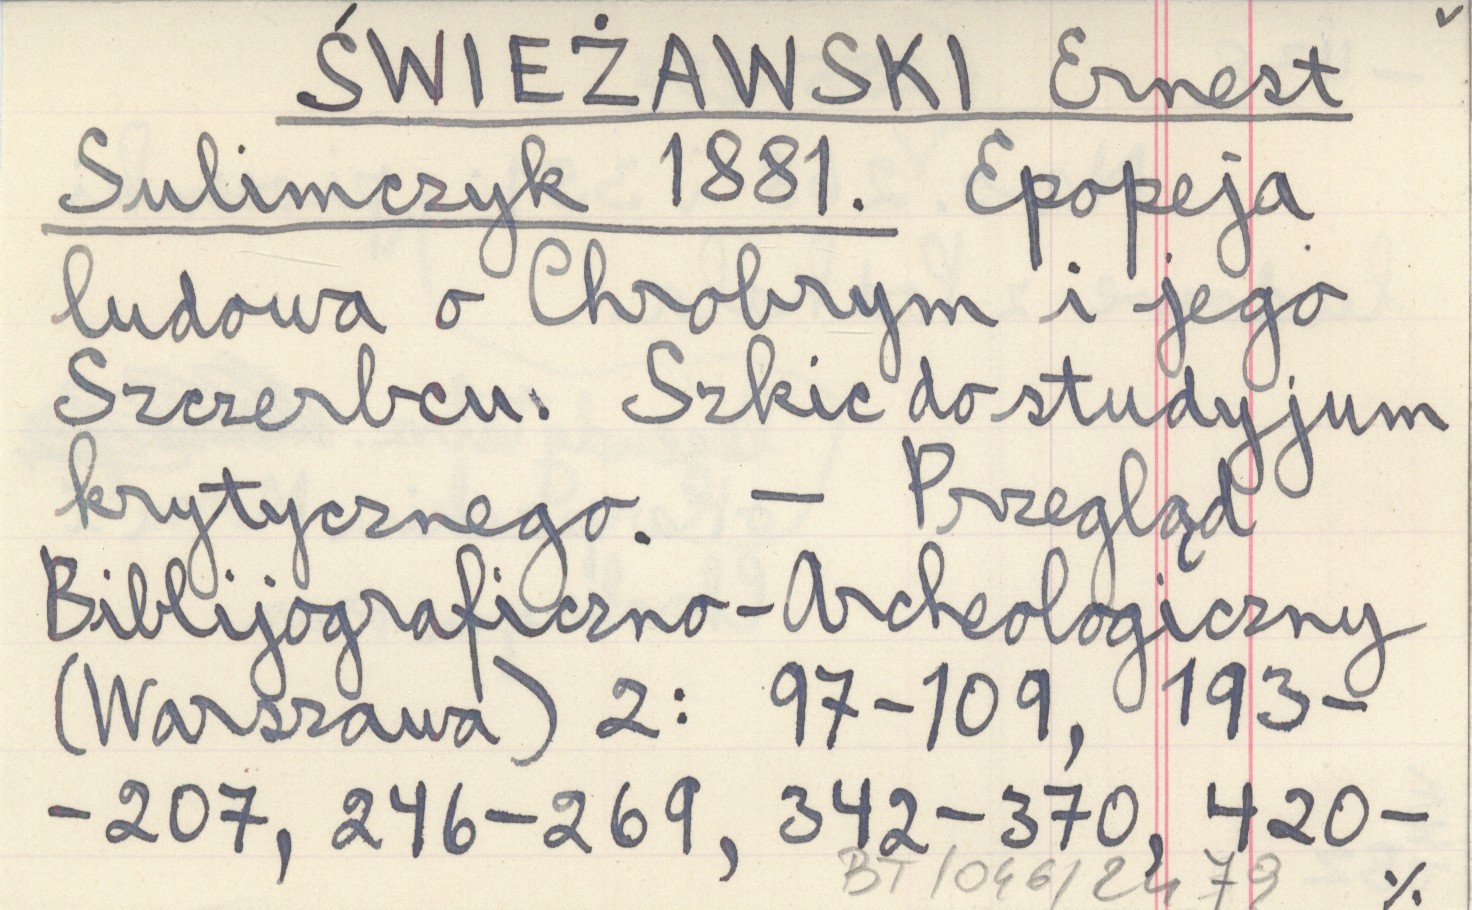 ŚWIEŻAWSKI Ernest
Sulimczyk 1881. Epopeja
ludowa o Chrobrym i jego
Szczerbcu. Szkic do studyjum
krytycznego. — Przegląd
Biblijograficzno-Archeologiczny
(Warszawa) 2: 97-109, 193-
-207, 246-269, 342-370, 420-
BT/046/2479 ⁒